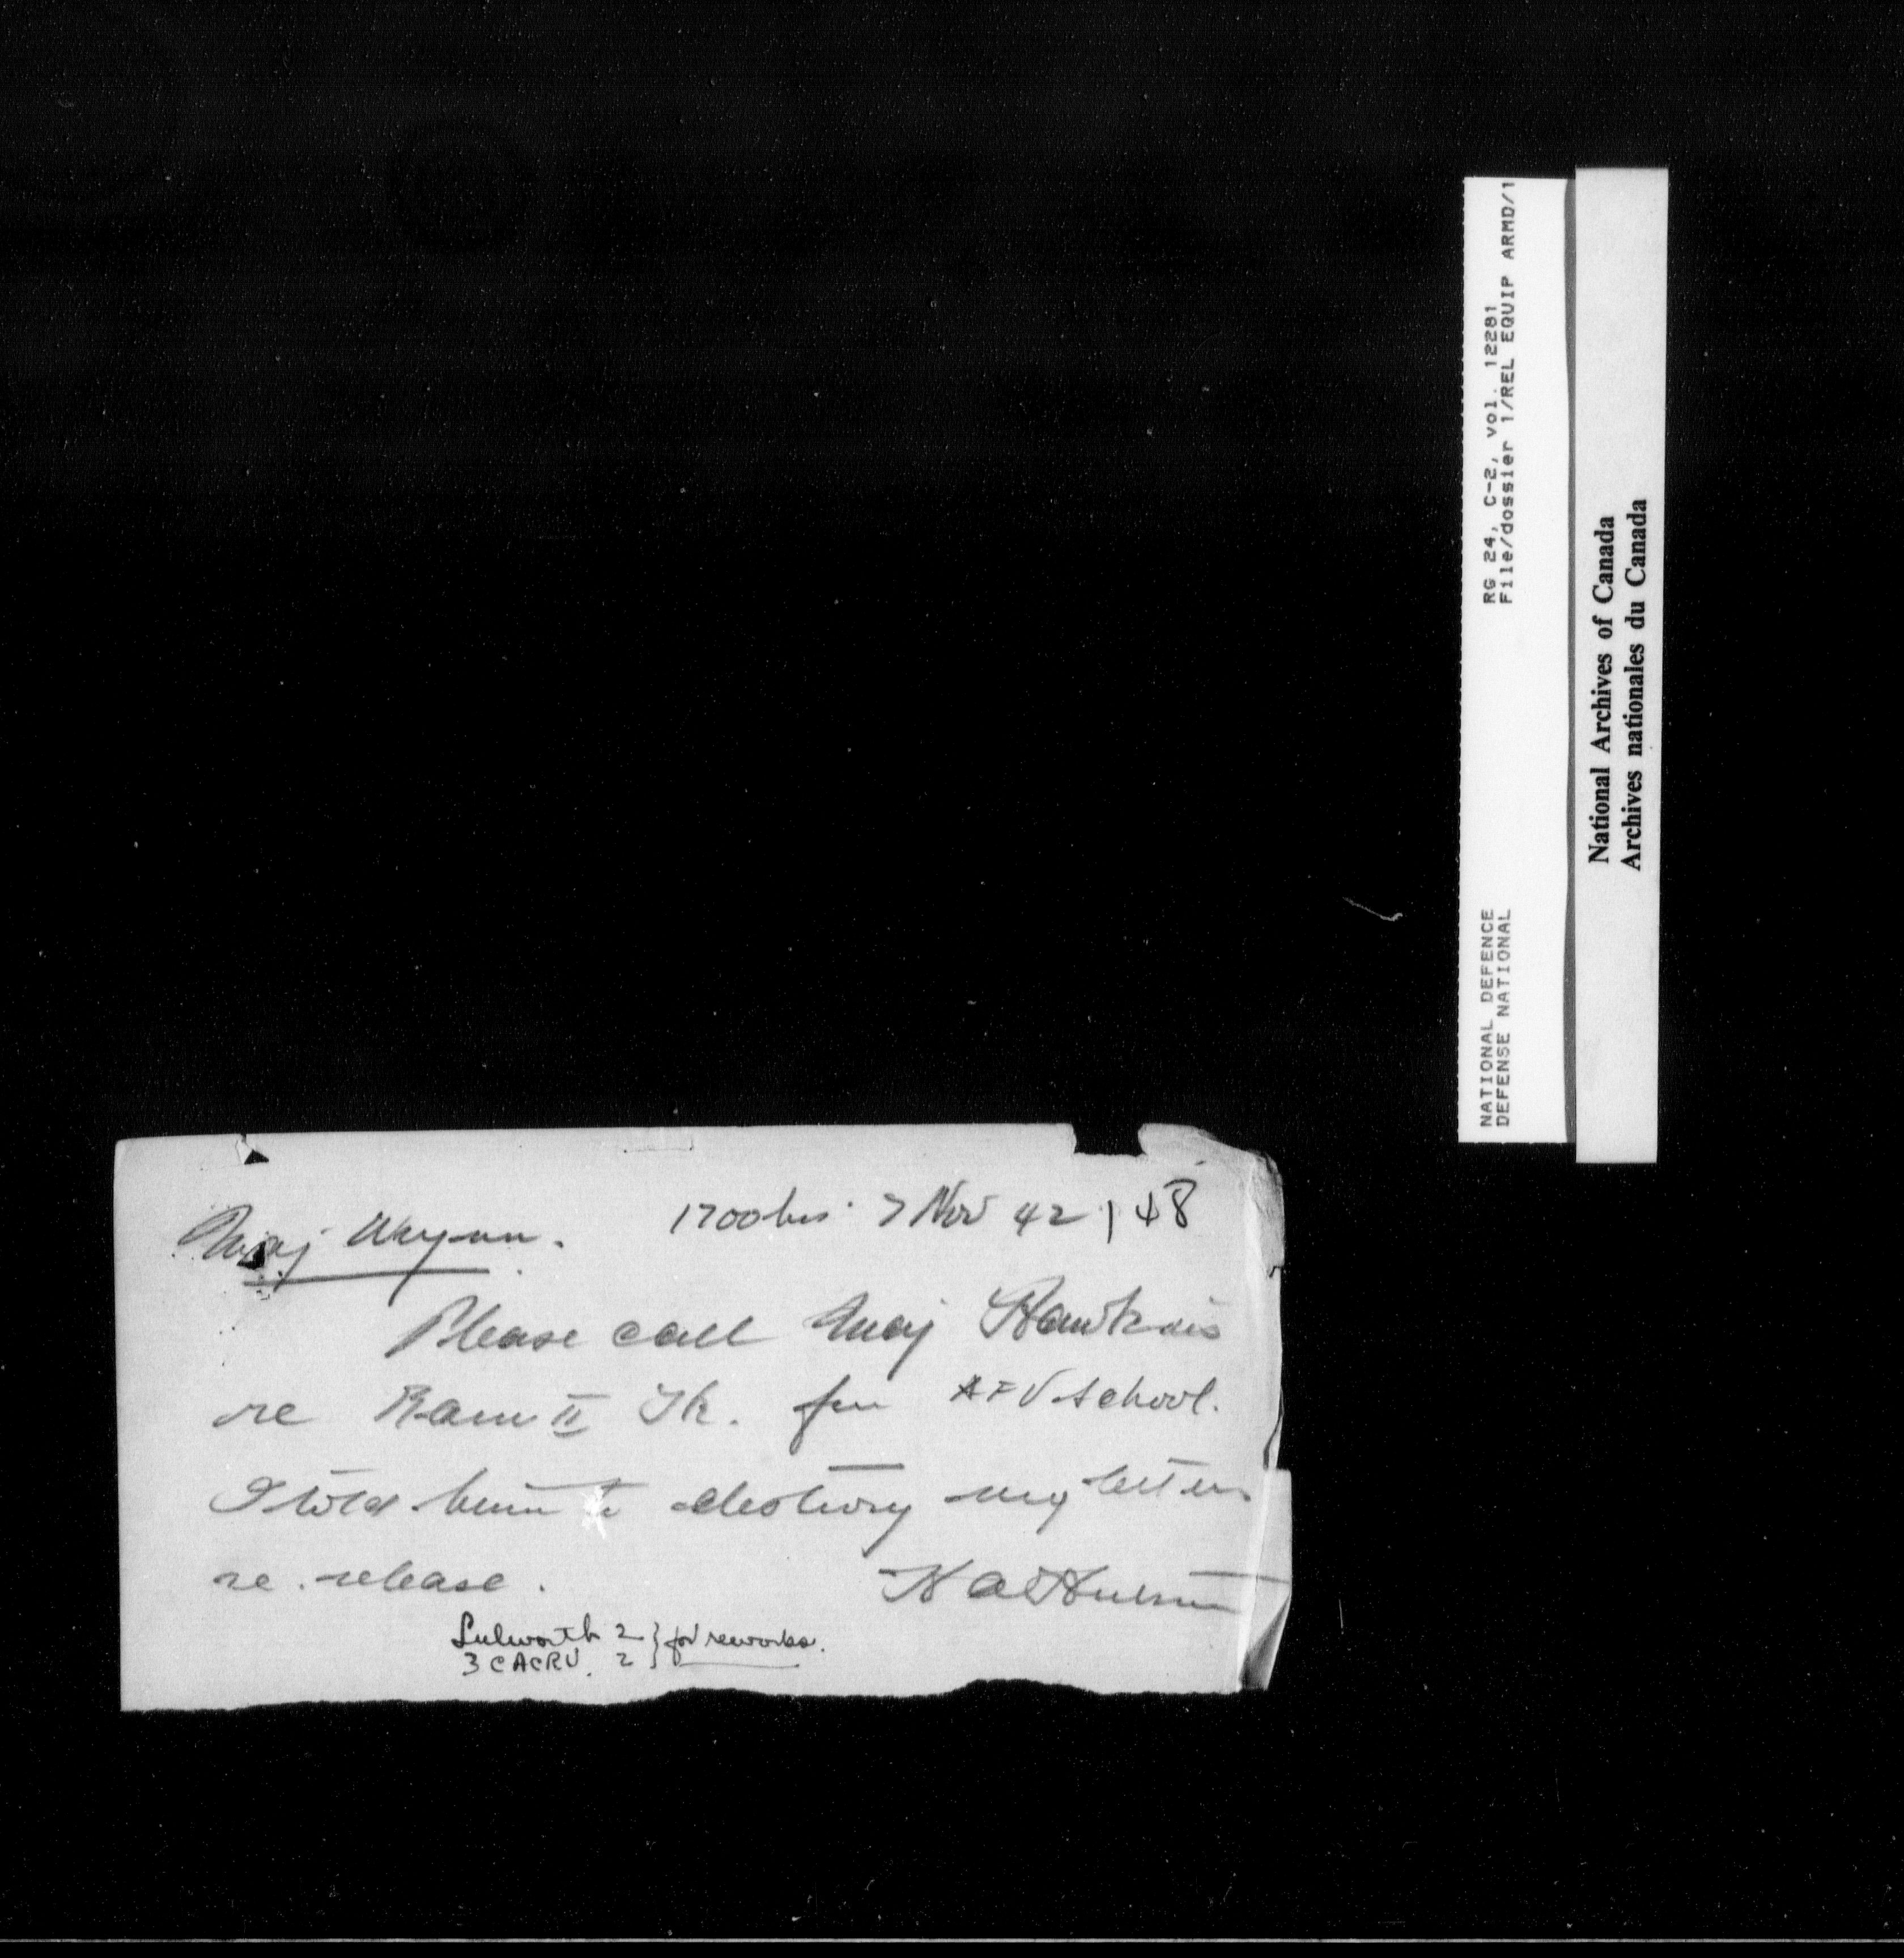 NATIONAL DEFENCE
DEFENSE NATIONAL
RG 24, C-2, vol. 12281
File/dossier 1/REL EQUIP ARMD/1
National Archives of Canada
Archives nationales du Canada
1700 hrs. 7 Nov 42 148
Maj
Please call Maj Hawkins
re Ram II Tk. for AFV School.
I told him to destroy my letter
re. release.
Lulworth 2 } for reworks.
3 CACRU. 2